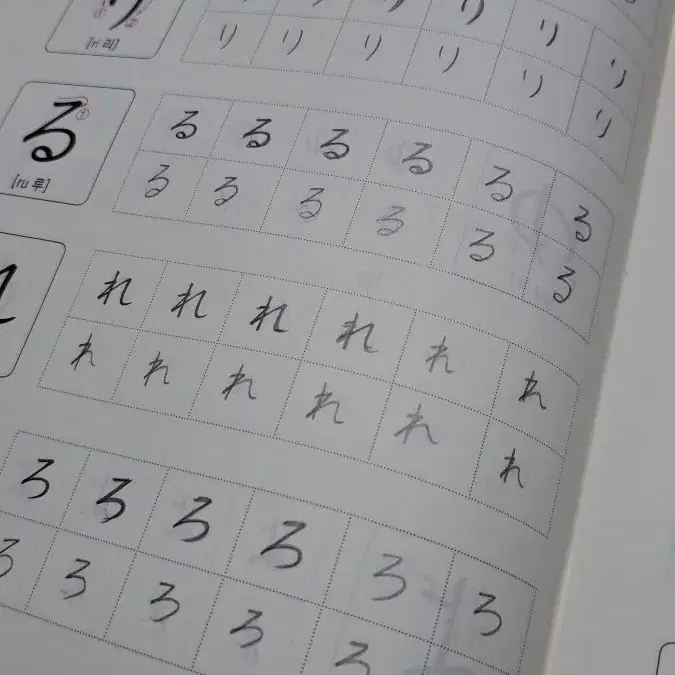 り り り
[ri 리]
り り り り り り
る ①
[ru 루]
る る る る る る
る る る る る る
れ れ れ れ れ れ
れ れ れ れ れ れ
ろ ろ ろ ろ ろ ろ
ろ ろ ろ ろ ろ